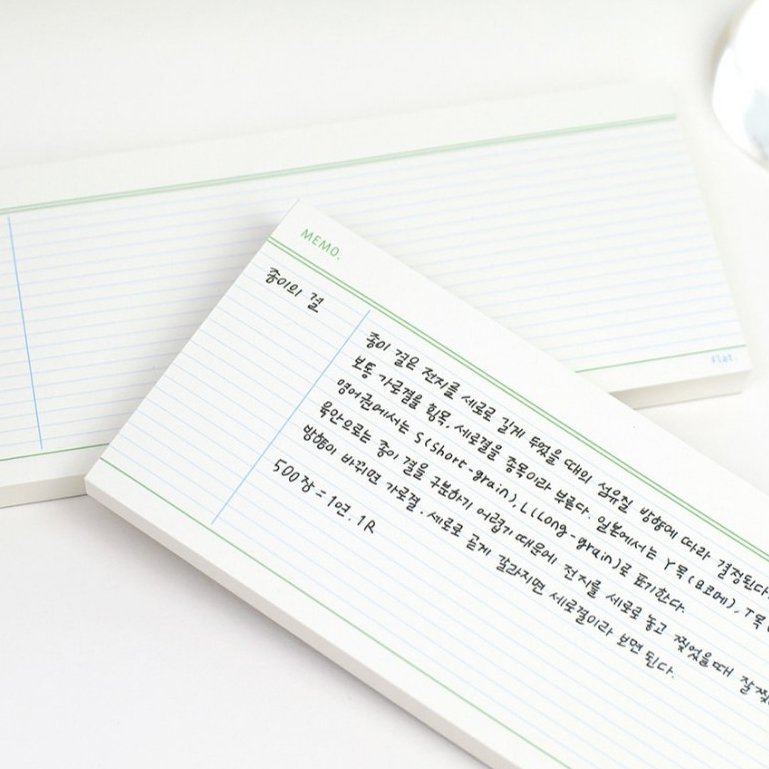 MEMO.
종이의 결
종이 결은 전지를 세로로 길게 두었을 때의 섬유질 방향에 따라 결정된다.
보통 가로결을 횡목, 세로결을 종목이라 부른다. 일본에서는 Y목(요코메), T목
영어권에서는 S(Short-grain), L(Long-grain)로 표기한다.
육안으로는 종이 결을 구분하기 어렵기 때문에 전지를 세로로 놓고 찢었을때 잘
방향이 바뀌면 가로결, 세로로 곧게 갈라지면 세로결이라 보면 된다.
500장 = 1연. 1R
Flat.